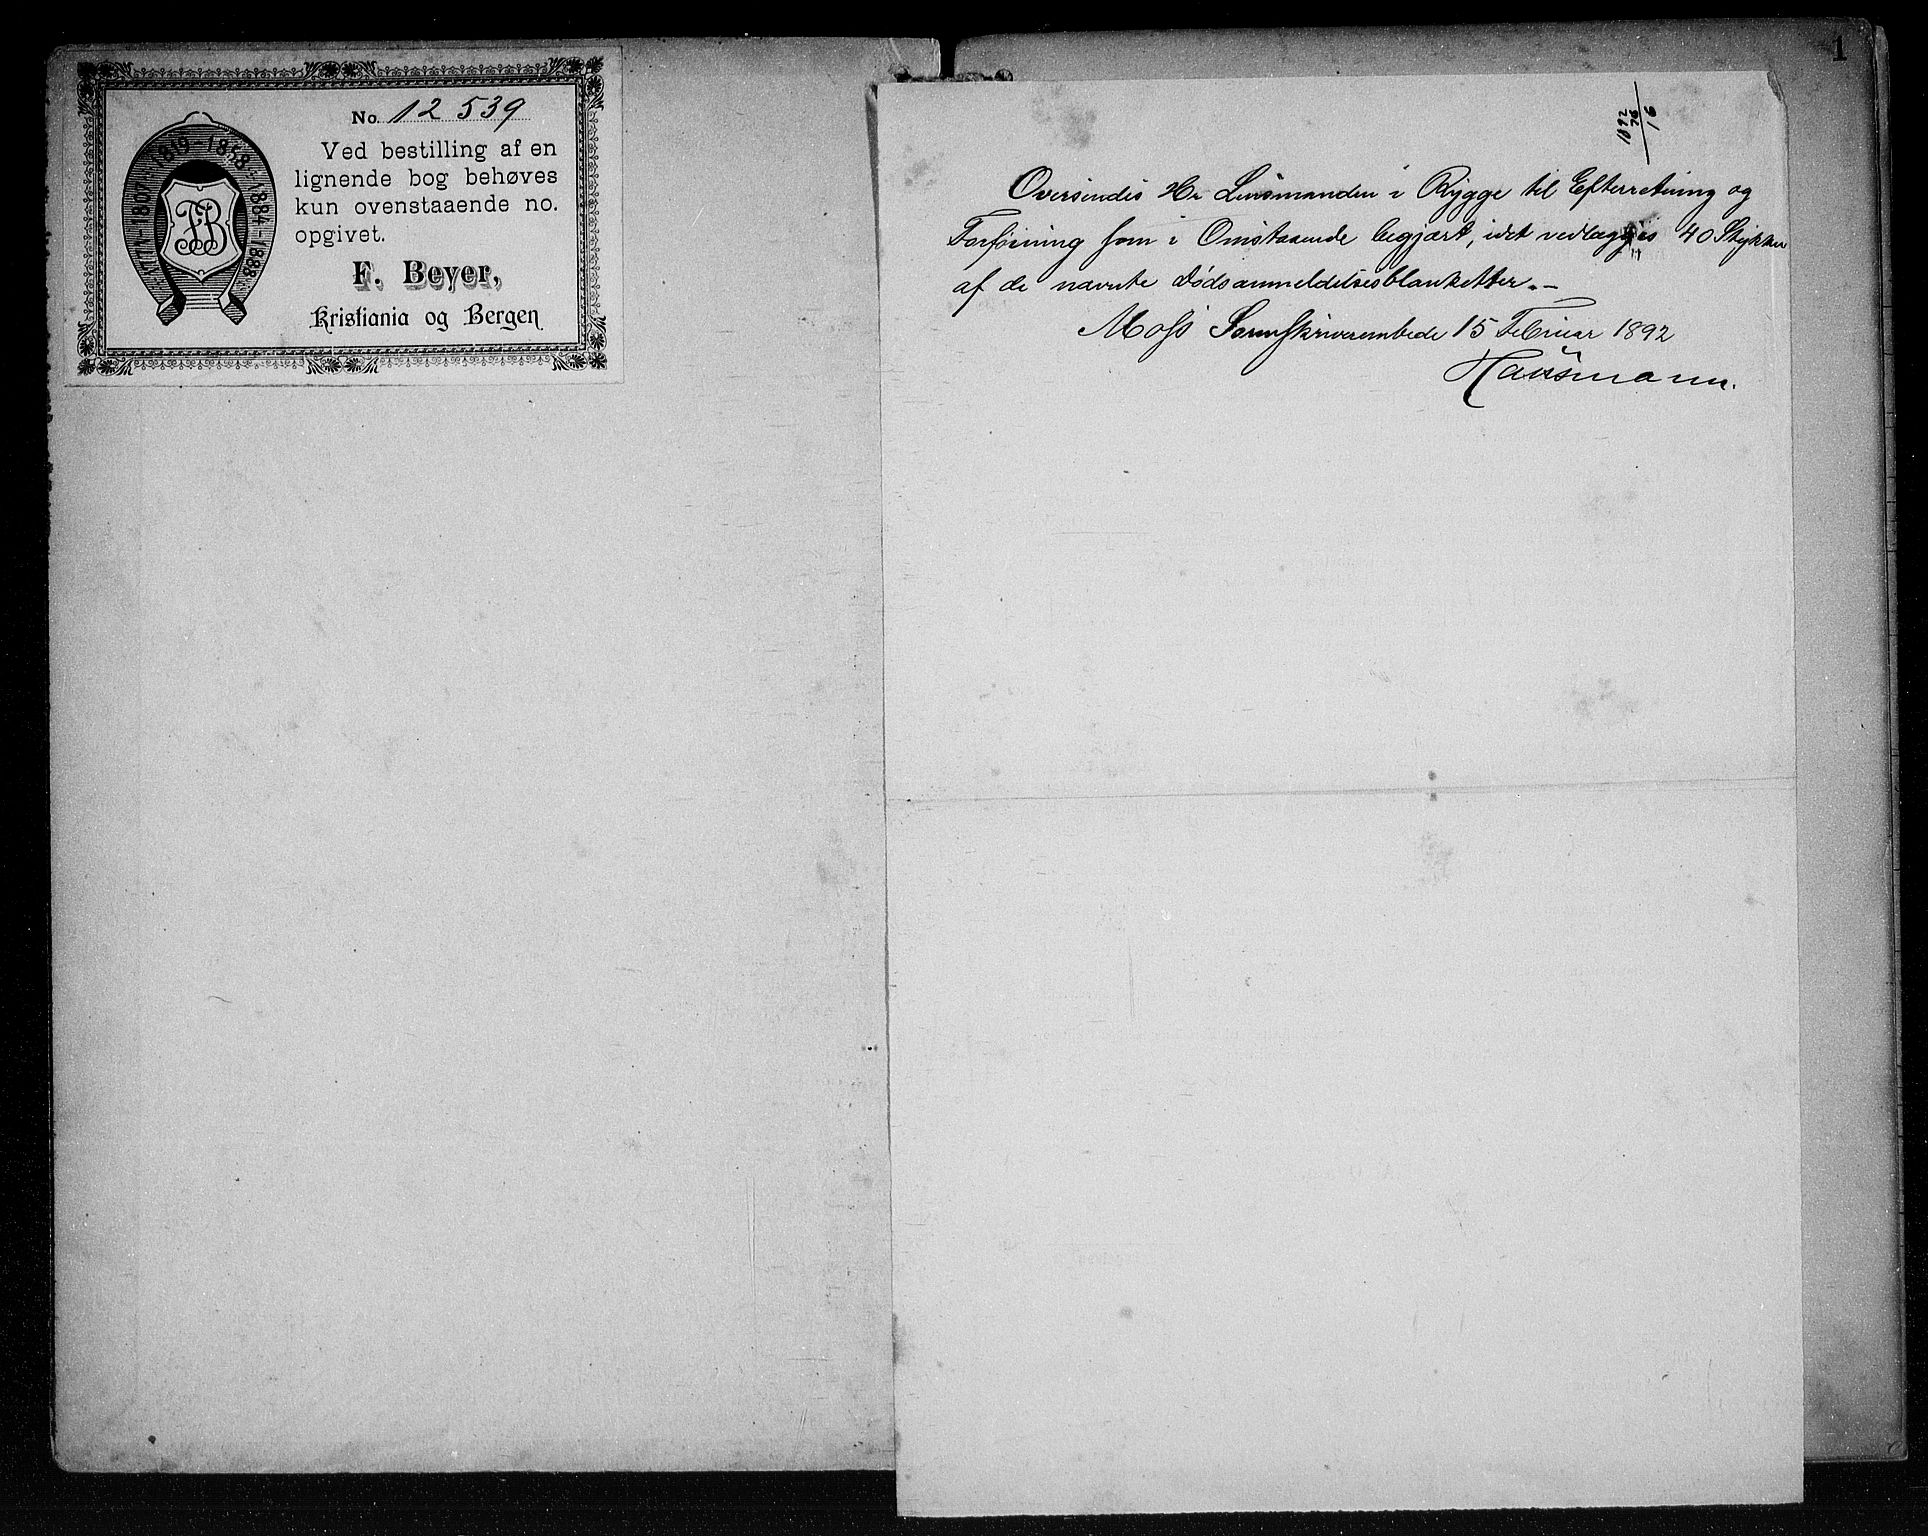 No. 12 539
Ved bestilling af en
lignende bog behøves
kun ovenstaaende no.
opgivet.
F. Beyer,
Kristiania og Bergen
1771-1807-1819-1858-1884-1888
FB
1
1892
26/16
Oversendes Hr Lensmanden i Rygge til Efterretning og
Forføining som i Omstaaende begjært, idet vedlægges 40 Stykker
af de nævnte Dødsanmeldelsesblanketter.-
Moss Sorenskriverembede 15 Februar 1892
Hausmann.